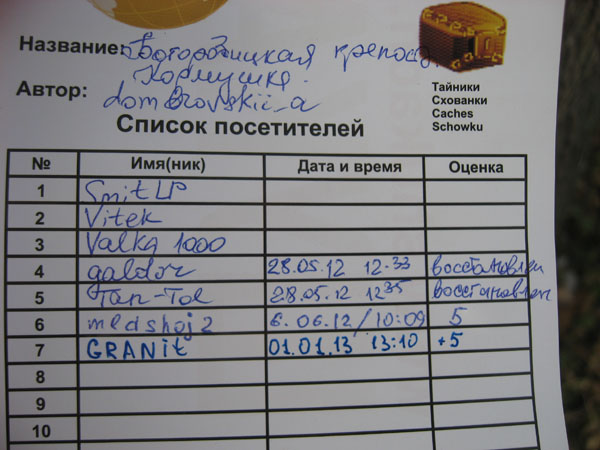 Название: Богородицкая крепость
Кормушка
Автор: dombrovskii_a
Тайники
Схованки
Caches
Schowku
Список посетителей
№ Имя(ник) Дата и время Оценка
1 SmitLP
2 Vitek
3 Valka 1000
4 galdor 28.05.12 12-33 восстановлен
5 Tan-Tol 28.05.12 12 35 восстановлен
6 medshoj2 6.06.12/10:09 5
7 GRANit 01.01.13 13:10 +5
8
9
10